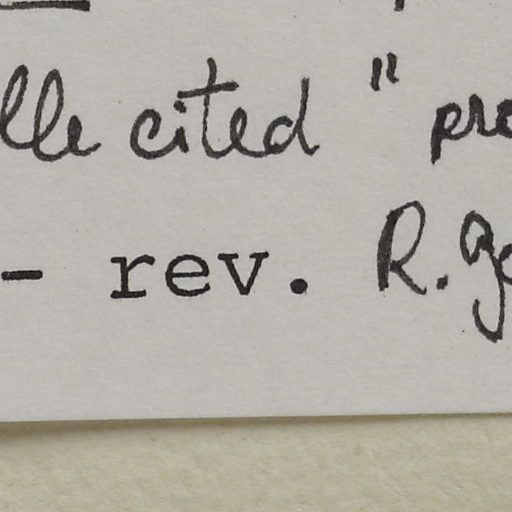 lle cited " pre
- rev. R. Ge